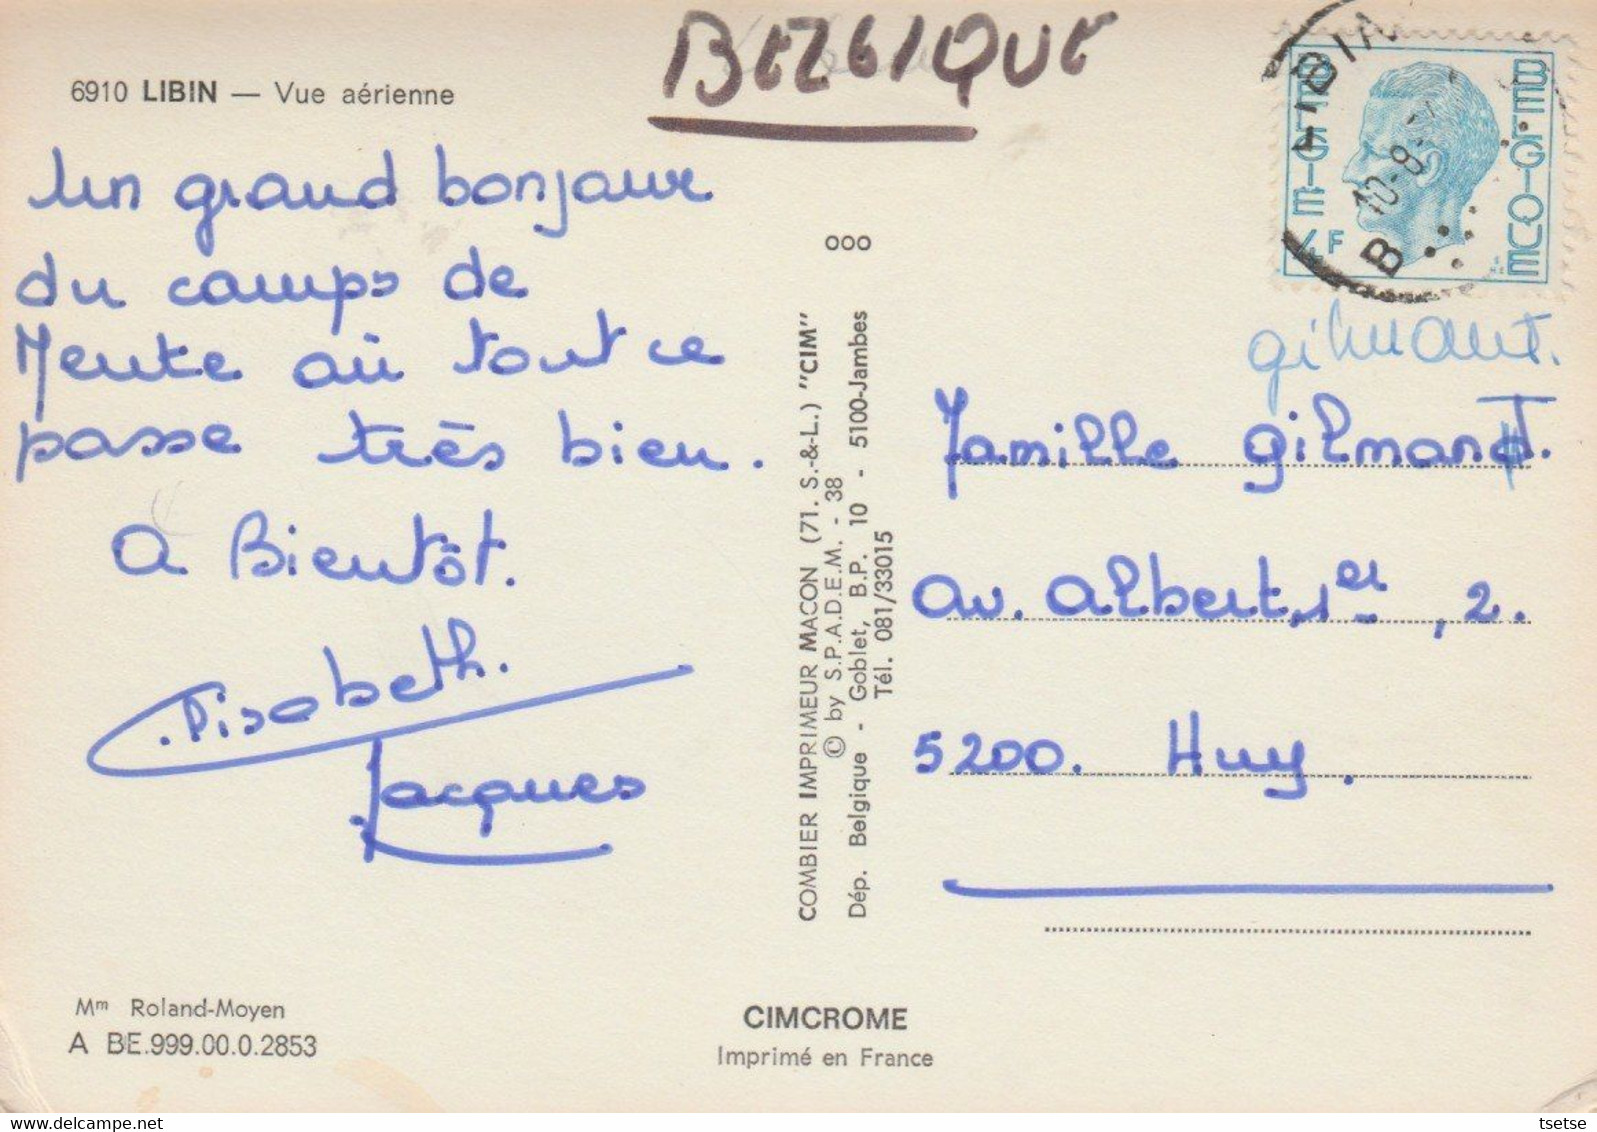 BELGIQUE
6910 LIBIN — Vue aérienne
Un grand bonjour
du camps de
Meute où tout ce
passe très bien.
A Bientôt.
Elisabeth.
Jacques
Mm Roland-Moyen
A BE.999.00.0.2853
ooo
COMBIER IMPRIMEUR MACON (71. S.-&-L.) "CIM"
© by S.P.A.D.E.M. - 38
Dép. Belgique - Goblet, B.P. 10 - 5100-Jambes
Tél. 081/33015
CIMCROME
Imprimé en France
BELGIE
BELGIQUE
4F
LIBIN
10-8-
B
gilmant.
Famille gilmant.
Av. Albert 1er, 2.
5200. Huy.
tsetse